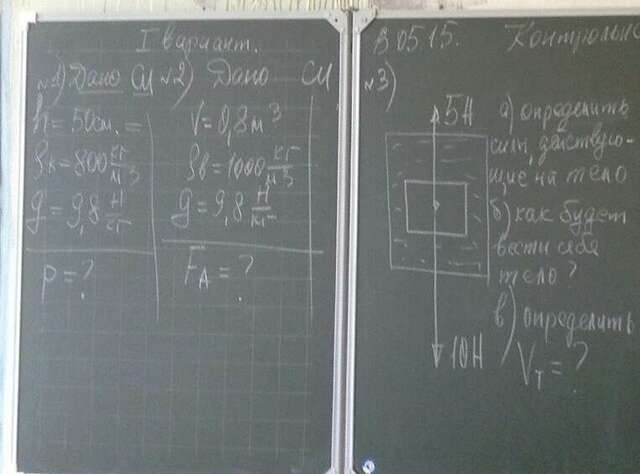 I вариант.
№1) Дано СИ
h = 50см. =
ρк = 800 кг/м³
g = 9,8 Н/кг
p = ?
№2) Дано СИ
V = 0,8 м³
ρв = 1000 кг/м³
g = 9,8 Н/кг
FА = ?
05.15. Контрольн
№3)
5Н
10Н
а) определить
силы, действую-
щие на тело
б) как будет
вести себя
тело?
в) определить
Vт = ?